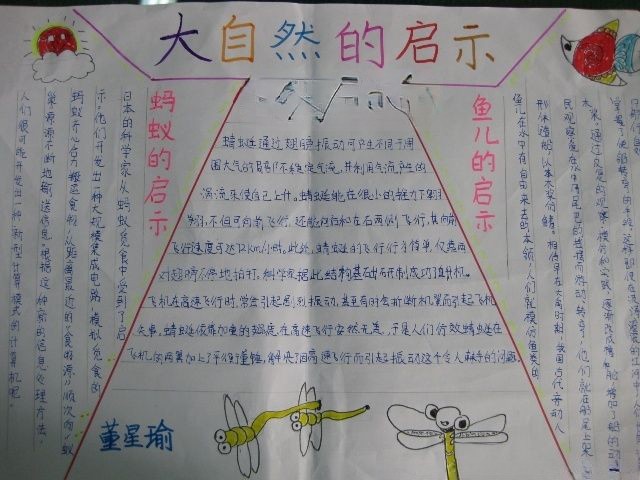 大自然的启示
蚂蚁的启示
日本的科学家从蚂蚁觅食中受到了启
示,他们开发出一种大规模集成电路,模拟觅食的
蚂蚁齐心协力搬运食物
人们很可能开发出一种新型计算模式的计算机呢。
蜻蜓通过翅膀振动可产生不同于周
围大气的局部不稳定气流,并利用气流产生的
涡流来使自己上升。蜻蜓能在很小的推力下翱
翔,不但可向前飞行,还能向后和左右两侧飞行,其向前
飞行速度可达72km/小时。此外,蜻蜓的飞行行为简单,仅靠两
对翅膀不停地拍打。科学家据此结构基础研制成功直升机。
飞机在高速飞行时,常会引起剧烈振动,甚至有时会折断机翼而引起飞机
失事。蜻蜓依靠加重的翅痣在高速飞行安然无恙,于是人们仿效蜻蜓在
飞机的两翼加上了平衡重锤,解决了因高速飞行而引起振动这个令人棘手的问题
董星瑜
鱼儿的启示
鱼儿在水中有自由来去的本领,人们就模仿鱼类的
形体造船,以木桨仿鳍。相传早在大禹时期,我国古代劳动人
民观察鱼在水中用尾巴的摇摆而游动、转弯,他们就在船尾上架
木桨。通过反复的观察、模仿和实践,逐渐改成橹和舵,增加了船的动